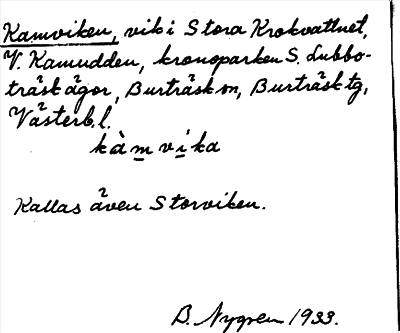 Kamviken, vik i Stora Krokvattnet,
V. Kamudden, kronoparken S. Lubbo-
träskägor, Burträsk sn, Burträsk tg,
Västerb. l.
kàmvika
Kallas även Storviken.
B. Nygren 1933.